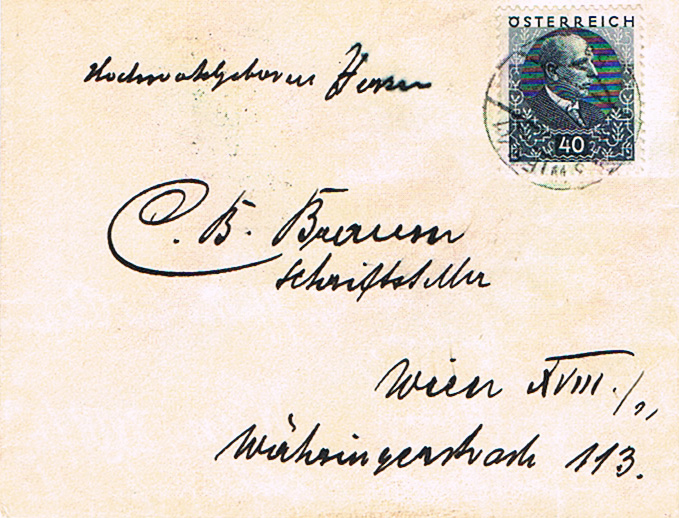 ÖSTERREICH
40
WIEN
Hochwohlgeboren Herrn
C. B. Braun
Schriftsteller
Wien XVIII./1,
Währingerstrasse 113.